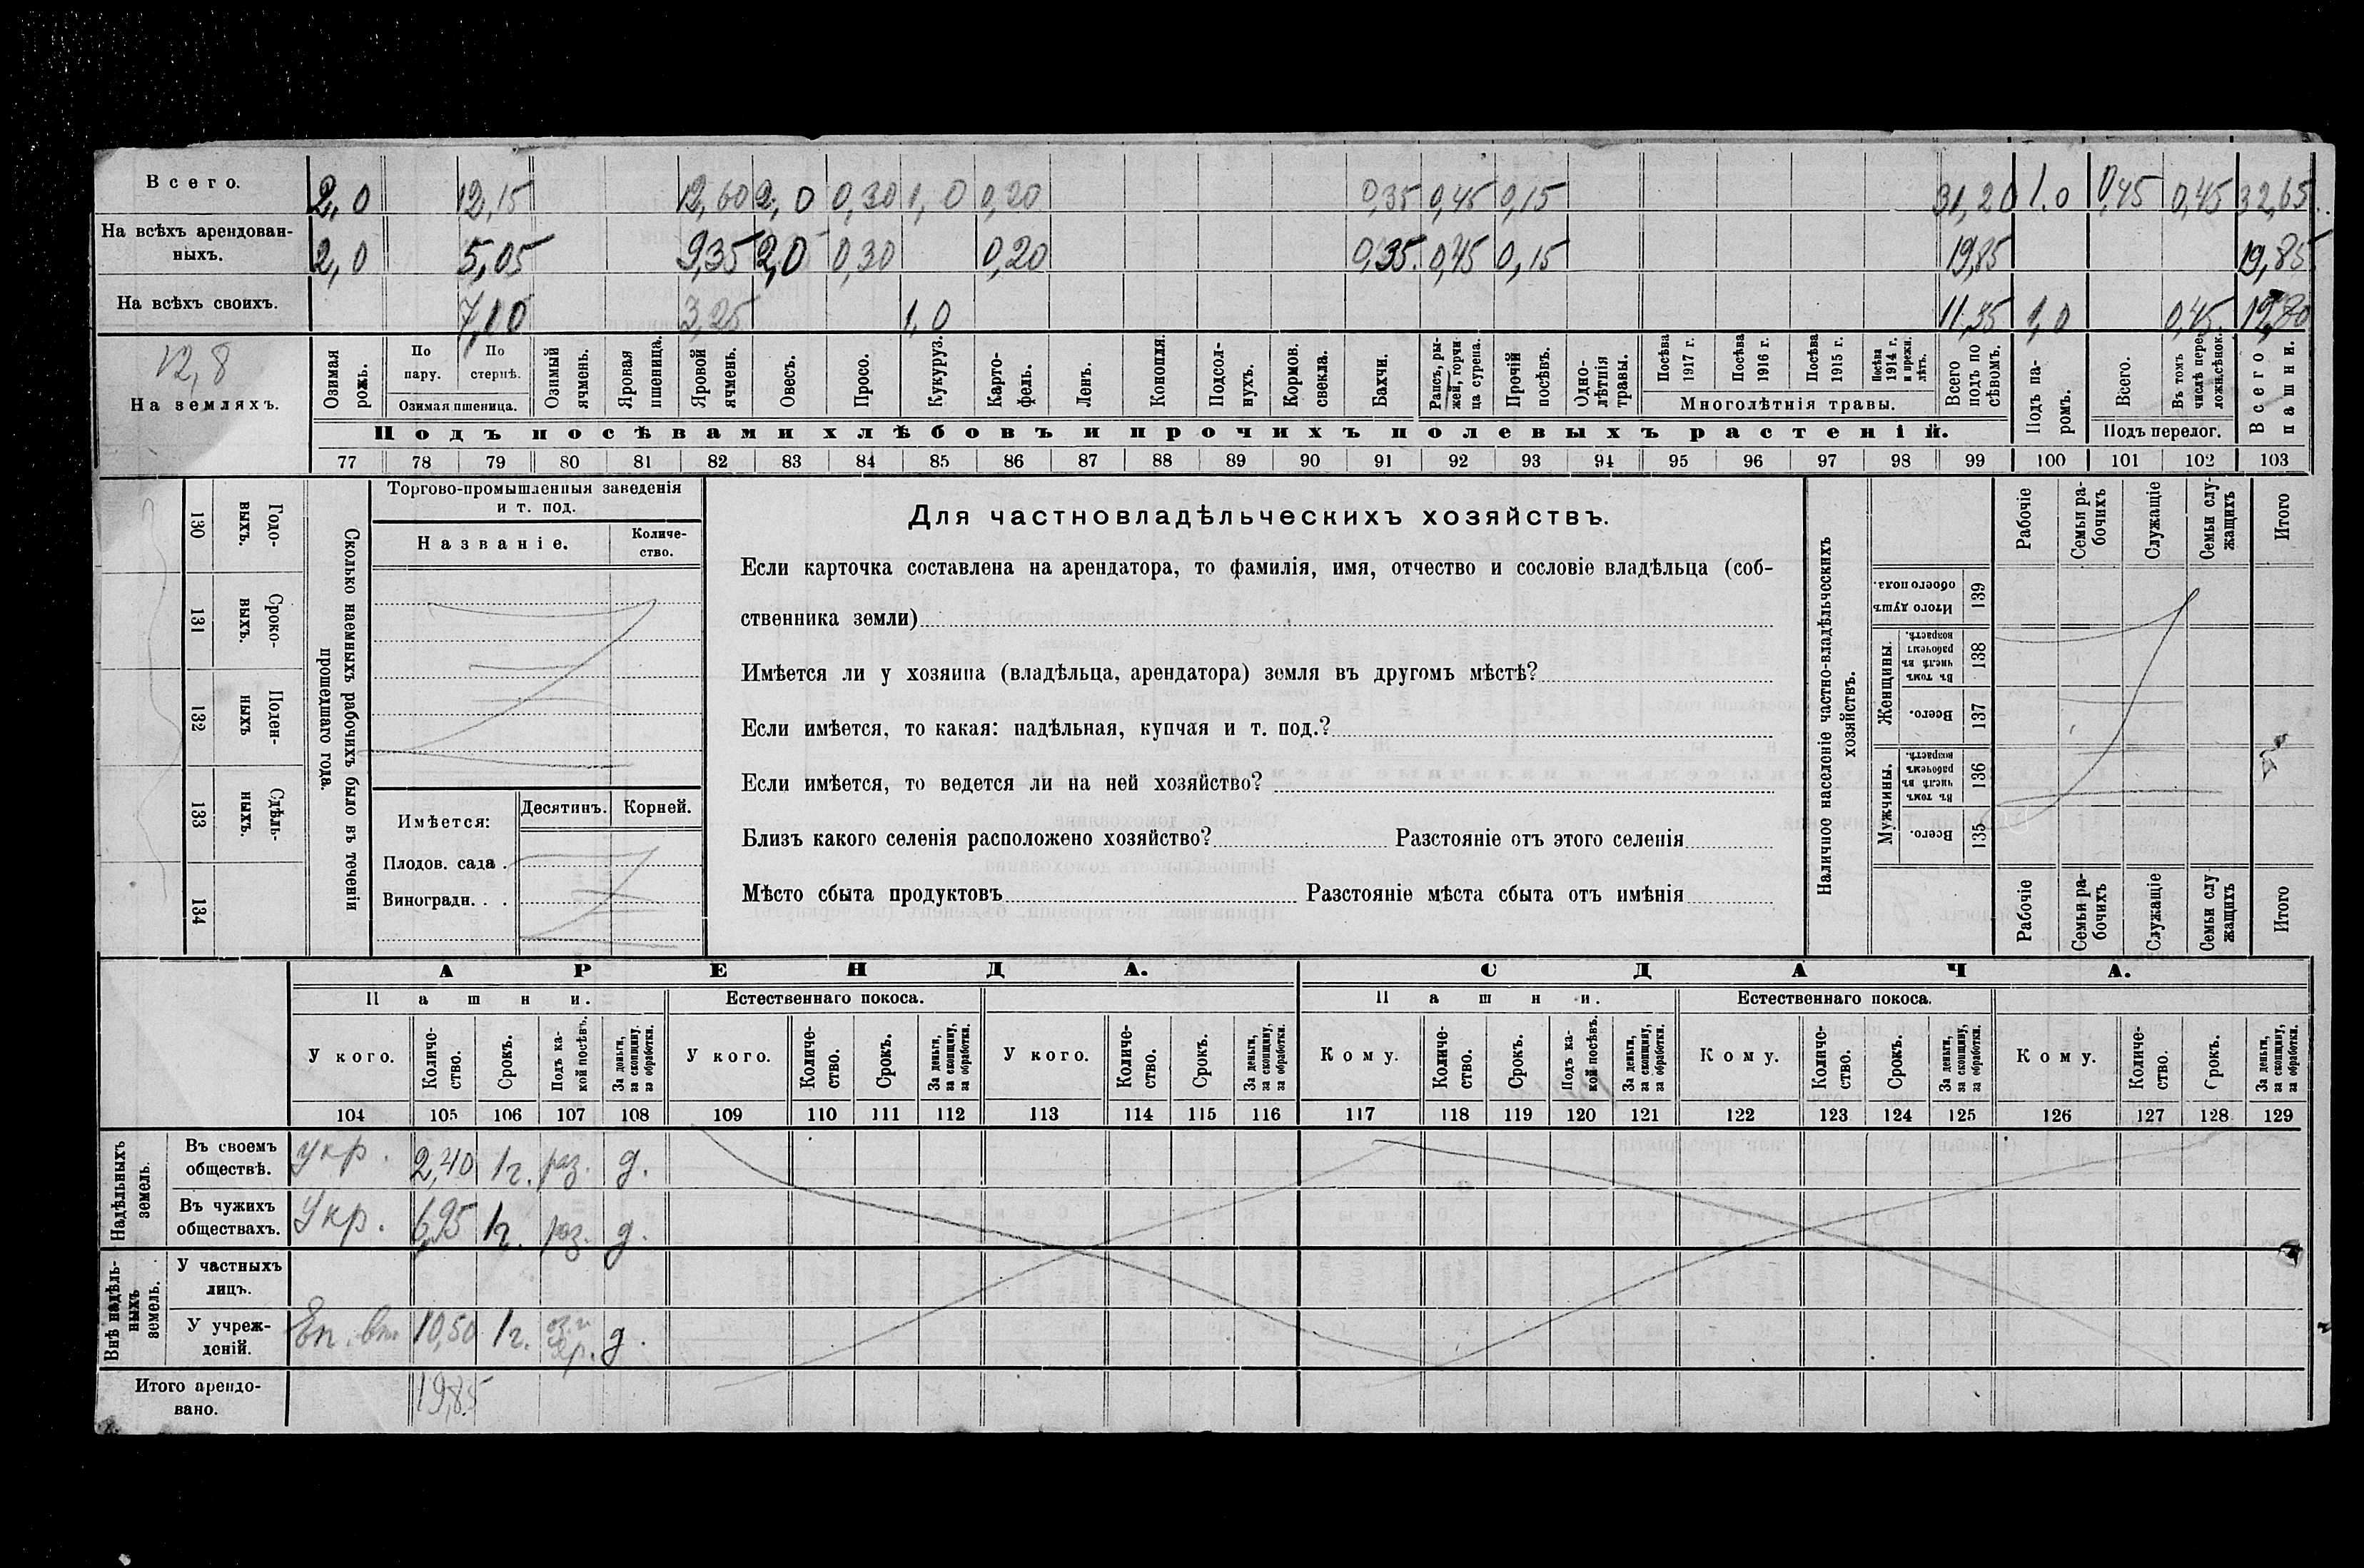 Всего. 2,0 12,15 12,60 2,0 0,30 1,0 0,20 0,35 0,45 0,15 31,20 1.0 0,45 0,45 32,65
На всѣхъ арендован-
ныхъ. 2,0 5,05 9,35 2,0 0,30 0,20 0,35 0,45 0,15 19,85 19,85
На всѣхъ своихъ. 7,10 3,25 1,0 11,35 1,0 0,45 12,80
12,8
На земляхъ.
Озимая рожь.
По пару.
По стернѣ.
Озимая пшеница.
Озимый ячмень.
Яровая пшеница.
Яровой ячмень.
Овесъ.
Просо.
Кукуруз.
Карто-
фель.
Ленъ.
Конопля.
Подсол-
нухъ.
Кормов.
свекла.
Бахчи.
Рапсъ, ры-
жей, горчи-
ца сурепа.
Прочій
посѣвъ.
Одно-
лѣтнія
травы.
Посѣва
1917 г.
Посѣва
1916 г.
Посѣва
1915 г.
Посѣва
1914 г.
и прежн.
лѣтъ.
Многолѣтнія травы.
Всего
подъ по
сѣвомъ.
Подъ па-
ромъ.
Всего.
Въ томъ
числѣ пере-
ложн.сѣнок.
Подъ перелог.
Всего
пашни.
Подъ посѣвами хлѣбовъ и прочихъ полевыхъ растеній.
77 78 79 80 81 82 83 84 85 86 87 88 89 90 91 92 93 94 95 96 97 98 99 100 101 102 103
130 Годо-
выхъ.
131 Сроко-
выхъ.
132 Поден-
ныхъ
133 Сдѣль-
ныхъ.
134
Сколько наемныхъ рабочихъ было въ теченіи
прошедшаго года.
Торгово-промышленныя заведенія
и т. под.
Названіе.
Количе-
ство.
Имѣется:
Десятинъ.
Корней.
Плодов. сада .
Виноградн. . .
Для частновладѣльческихъ хозяйствъ.
Если карточка составлена на арендатора, то фамилія, имя, отчество и сословіе владѣльца (соб-
ственника земли)
Имѣется ли у хозяина (владѣльца, арендатора) земля въ другомъ мѣстѣ?
Если имѣется, то какая: надѣльная, купчая и т. под.?
Если имѣется, то ведется ли на ней хозяйство?
Близъ какого селенія расположено хозяйство? Разстояніе отъ этого селенія
Мѣсто сбыта продуктовъ Разстояніе мѣста сбыта отъ имѣнія
Наличное населеніе частно-владѣльческихъ
хозяйствъ.
Рабочіе
Семьи ра-
бочихъ
Служащіе
Семьи слу-
жащихъ
Итого
Итого душъ
обоего пола.
139
Женщины.
Въ томъ
числѣ въ
рабочемъ
возрастѣ.
138
Всего.
137
Мужчины.
Въ томъ
числѣ въ
рабочемъ
возрастѣ.
136
Всего.
135
Рабочіе
Семьи ра-
бочихъ
Служащіе
Семьи слу
жащихъ
Итого
АРЕНДА. СДАЧА.
Пашни. Естественнаго покоса. Пашни. Естественнаго покоса.
У кого.
Количе-
ство.
Срокъ.
Подъ ка-
кой посѣвъ.
За деньги,
за скопщину,
за обработки.
У кого.
Количе-
ство.
Срокъ.
За деньги,
за скопщину,
за обработки.
У кого.
Количе-
ство.
Срокъ.
За деньги,
за скопщину,
за обработки.
Кому.
Количе-
ство.
Срокъ.
Подъ ка-
кой посѣвъ.
За деньги,
за скопщину,
за обработки.
Кому.
Количе-
ство.
Срокъ.
За деньги,
за скопщину,
за обработки.
Кому.
Количе-
ство.
Срокъ.
За деньги,
за скопщину,
за обработки.
104 105 106 107 108 109 110 111 112 113 114 115 116 117 118 119 120 121 122 123 124 125 126 127 128 129
Надѣльныхъ
земель.
Въ своемъ
обществѣ. укр. 2,40 1г. раз. д.
Въ чужихъ
обществахъ. Укр. 6,95 1г. раз. д.
Внѣ надѣль-
ныхъ
земель.
У частныхъ
лицъ.
У учреж-
деній. 10,50 1г. оз. и яр. д.
Итого арендо-
вано. 19,85